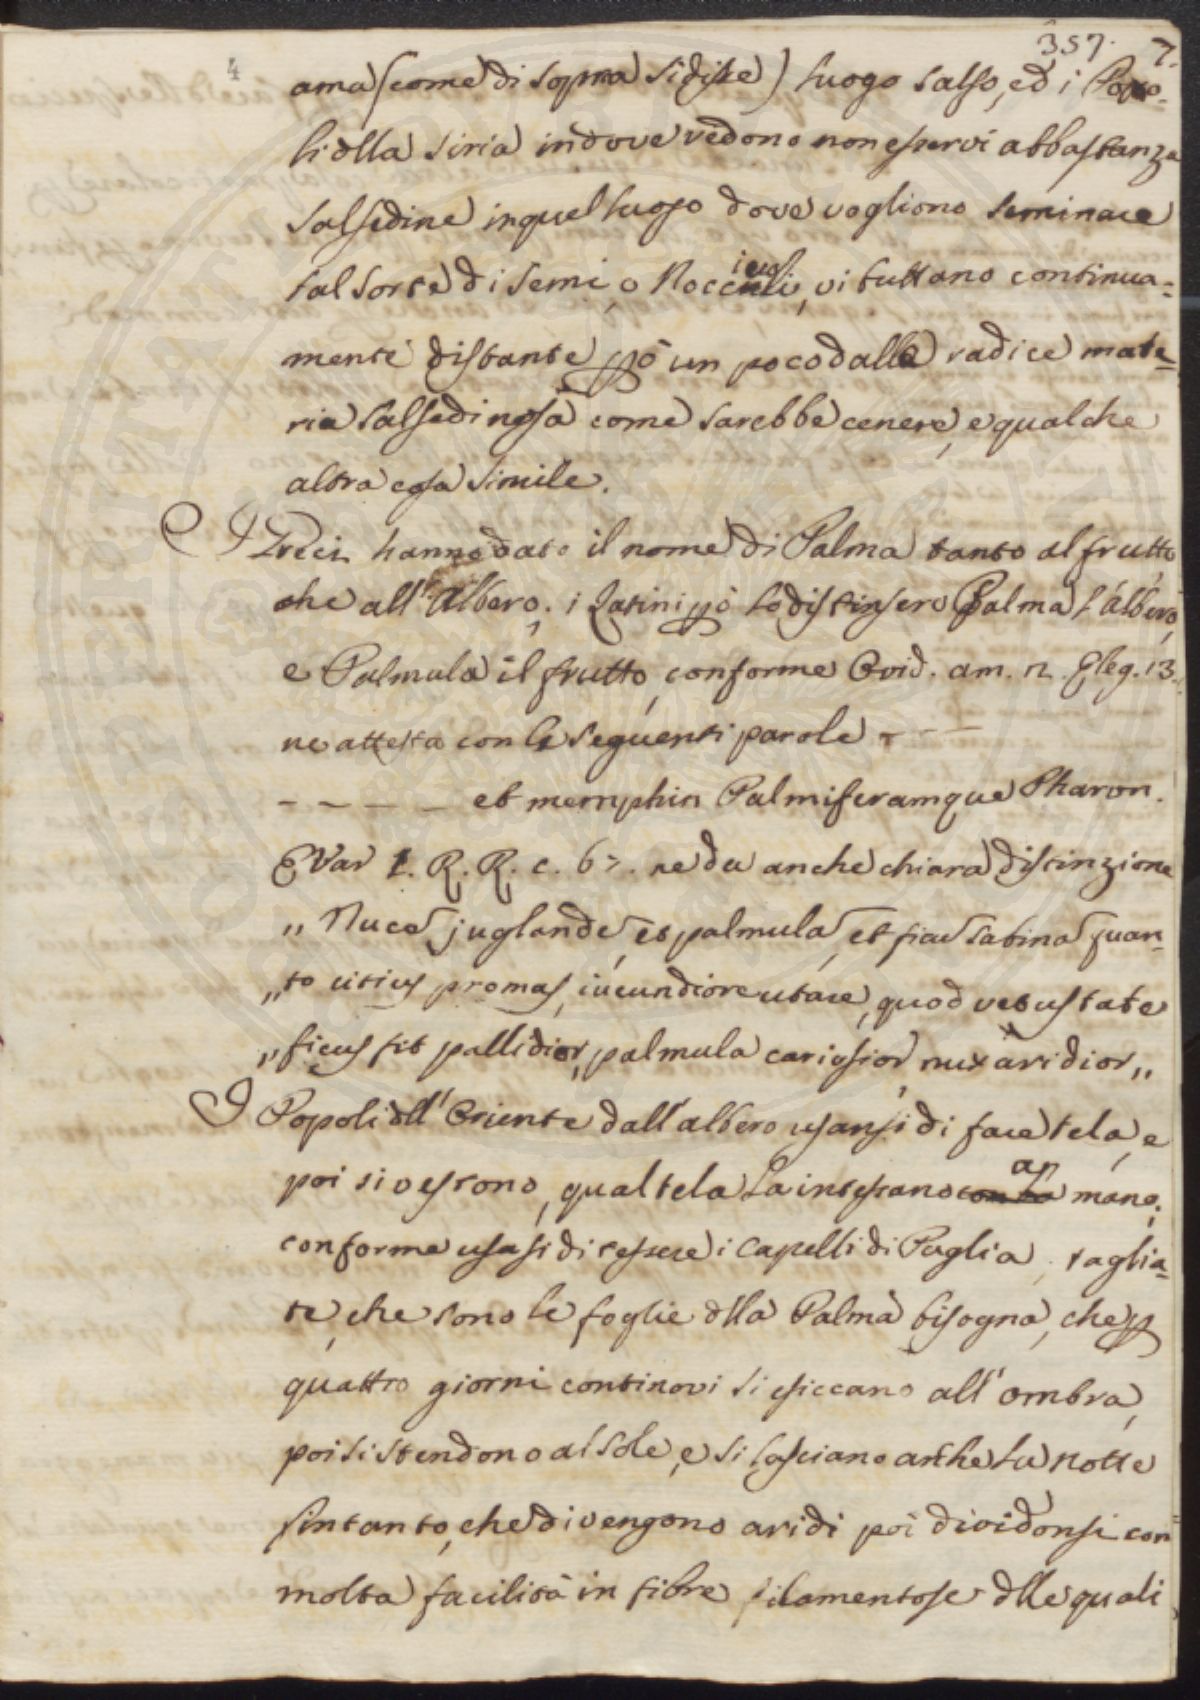 357. 7.
4
ama (come di sopra si disse) luogo salso, ed i Popo-
li dlla Siria indove vedono non esservi abbastanza
Salsedine in quel luogo dove vogliono seminare
tal sorte di Semi, o Noccieuoli, vi buttano continua=
mente distante ppò un poco dalla radice mate=
ria salsedinosa come sarebbe cenere, e qualche
altra cosa simile.
I Greci hanno dato il nome di Palma tanto al frutto
che all'Albero; i Latini ppò lo distinsero Palma l'Albero,
e Palmula il frutto, conforme Ovid. am. 2. Eleg. 13.
ne attesta con le seguenti parole - - -
- - - - - et memphin Palmiferamque Pharon.
E Var 1. R. R. c. 67. ne da anche chiara distinzione
„ Nuce juglande, et palmula, et ficu Sabina quan=
„ to citius promas, iucundiore utare, quod vetustate
„ ficus fit pallidior, palmula cariosior, nux aridior „
I Popoli dll'Oriente dall'albero usansi di fare tela, e
poi si vestono, qual tela la intessano con la ap mano;
conforme usasi di tessere i Capelli di Paglia, taglia=
te, che sono le foglie dlla Palma bisogna, che p
quattro giorni continovi si esiccano all'ombra,
poi si stendono al sole, e si lasciano anche la notte
sintanto, che divengono aridi poi dividonsi con
molta facilità in fibre filamentose dlle quali